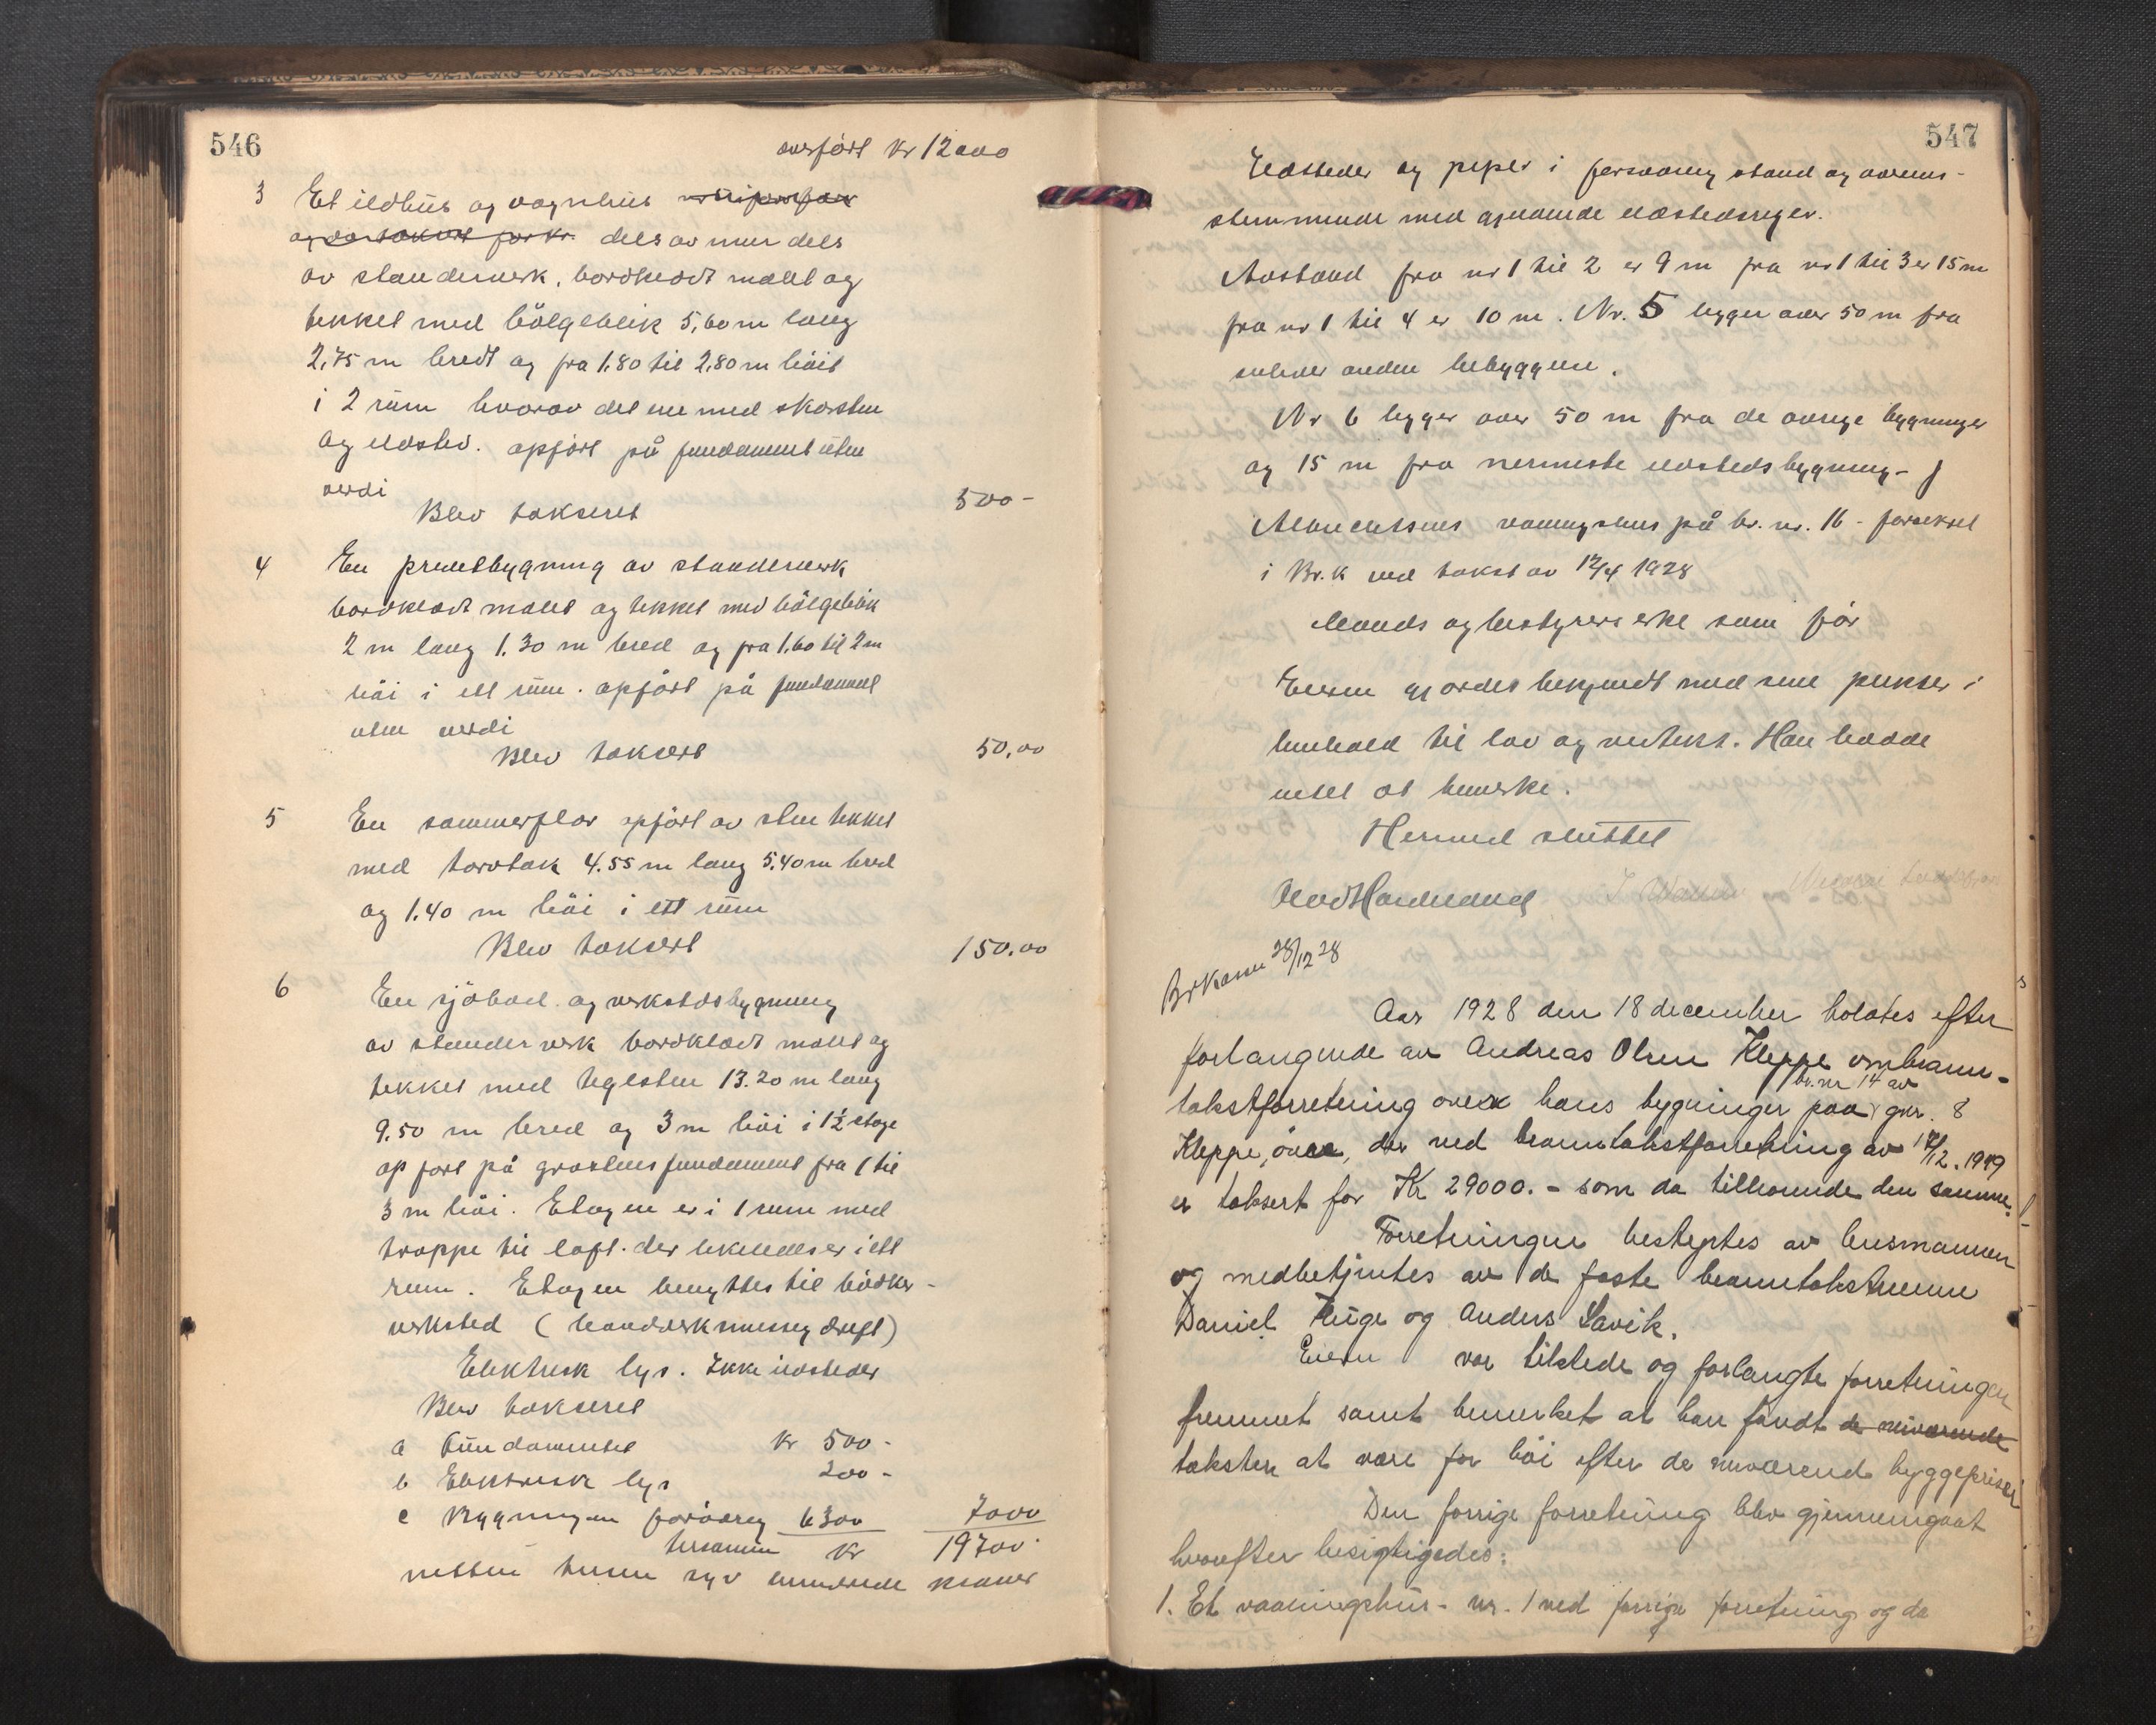 546
overført Kr 12000
3 Et ildhus og vognhus
dels av mur dels
av stenderverk, bordklædt malet og
tekket med bölgeblik 5,60 m lang
2,75 m bredt og fra 1.80 til 2.80 m höit
i 2 rum hvorav det ene med skorsten
og ildsted. opfört på fundament uten
verdi
Blev takseret 500-
4 En privetbygning av stenderverk
bordklædt malet og tekket med bölgeblik
2 m lang 1.30 m bred og fra 1.60 til 2 m
höi i ett rum. opfört på fundament
uten verdi
Blev taksert 50,00
5 En sommerflor opfört av sten tekket
med torvtak 4.55 m lang 5.40 m bred
og 1.40 m höi i ett rum
Blev taksert 150.00
6 En sjöbod og verkstedsbygning
av stenderverk bordklædt malet og
tekket med teglsten 13.20 m lang
9.50 m bred og 3 m höi i 1½ etage
opfört på gråstensfundament fra 1 til
3 m höi. Etagen er i 1 rum med
trappe til loft. der likeledes er i ett
rum. Etagen benyttes til bödker-
verksted (handverksmessig drift)
Elektrisk lys. Ikke ildsteder
Blev takseret
a Fundamentet kr 500-
b Elektrisk lys 200-
c Bygningen forövrig 6300 7000
tilsammen kr 19700.
nitten tusen syv hundrede kroner
547
Ildsteder og piper i forsvarlig stand og overens-
stemmende med gjeldende ildstedsregler.
Avstand fra nr 1 til 2 er 9 m fra nr 1 til 3 er 15 m
fra nr 1 til 4 er 10 m. Nr. 5 ligger over 50 m fra
enhver anden bebyggelse.
Nr 6 ligger over 50 m fra de övrige bygninger
og 15 m fra nermeste ildstedsbygning - J
våningshus på br. nr. 16 - forsikret
i Br.k ved takst av 12/4 1928
Brands og bestyrers erkl som för
Eieren gjordes bekjendt med sine plikter i
henhold til lov og vedtekt. Han hadde
intet at bemerke.
Hermed sluttet
Br kassen 28/12 28
Aar 1928 den 18 december holdtes efter
forlangende av Andreas Olsen Kleppe ombrann-
br. nr 14 av
takstforretning over hans bygninger paa gnr. 8
Kleppe, övre, der ved branntakstforretning av 17/12. 1919
er taksert for Kr 29000.- som da tilhörende den samme.
Forretningen bestyrtes av lensmannen
og medbetjentes av de faste branntakstmenn
Daniel Huge og Anders Lavik.
Eieren var tilstede og forlangte forretningen
fremmet samt bemerket at han fandt de nuværende
taksten at være for höi efter de nuværende byggepriser
Den forrige forretning blev gjennemgaat
hvorefter besigtigedes:
1. Et vaaningshus - nr. 1 ved forrige forretning og da